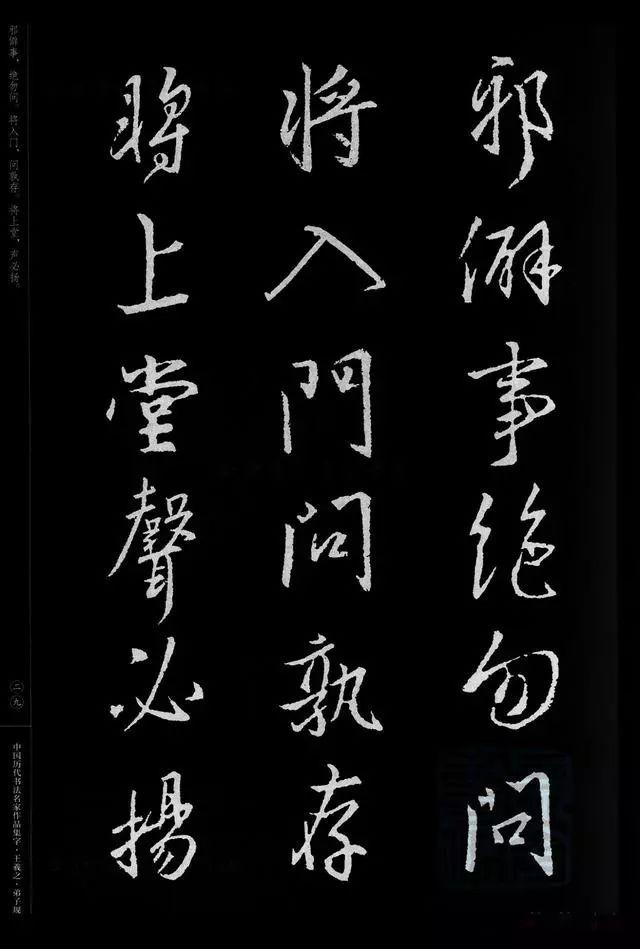 邪僻事絕勿問
將入門問孰存
將上堂聲必揚
邪僻事，绝勿问。将入门，问孰存。将上堂，声必扬。
二九
中国历代书法名家作品集字·王羲之·弟子规